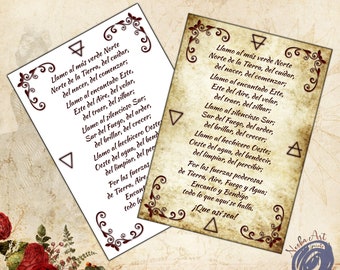 Llamo al más verde Norte
Norte de la Tierra, del cuidar,
del nacer, del comenzar;
Llamo al encantado Este,
Este del Aire, del volar,
del traer, del silbar;
Llamo al silencioso Sur;
Sur del Fuego, del arder,
del brillar, del crecer;
Llamo al hechicero Oeste;
Oeste del agua, del bendecir,
del limpiar, del percibir;
Por las fuerzas poderosas
de Tierra, Aire, Fuego y Agua;
Encanto y Bendigo
todo lo que
Llamo al más verde Norte
Norte de la Tierra, del cuidar,
del nacer, del comenzar;
Llamo al encantado Este,
Este del Aire, del volar,
del traer, del silbar;
Llamo al silencioso Sur;
Sur del Fuego, del arder,
del brillar, del crecer;
Llamo al hechicero Oeste;
Oeste del agua, del bendecir,
del limpiar, del percibir;
Por las fuerzas poderosas
de Tierra, Aire, Fuego y Agua;
Encanto y Bendigo
todo lo que aquí se halla.
¡Que así sea!